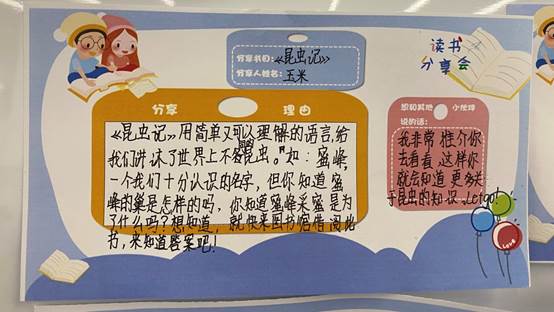 读书
分享会
分享书目:《昆虫记》
分享人姓名:玉米
分享 理由
《昆虫记》用简单又可以理解的语言,给
我们讲述了世界上不多昆虫。"如:蜜蜂,
一个我们十分认识的名字,但你知道蜜
蜂的巢是怎样的吗,你知道蜜蜂采蜜是为
了什么吗?想知道,就快来图书馆借阅此
书,来知道答案吧!
想和其他小伙伴
说的话:
我非常推介你
去看看,这样你
就会知道更多关
于昆虫的知识。Letgo!
Love